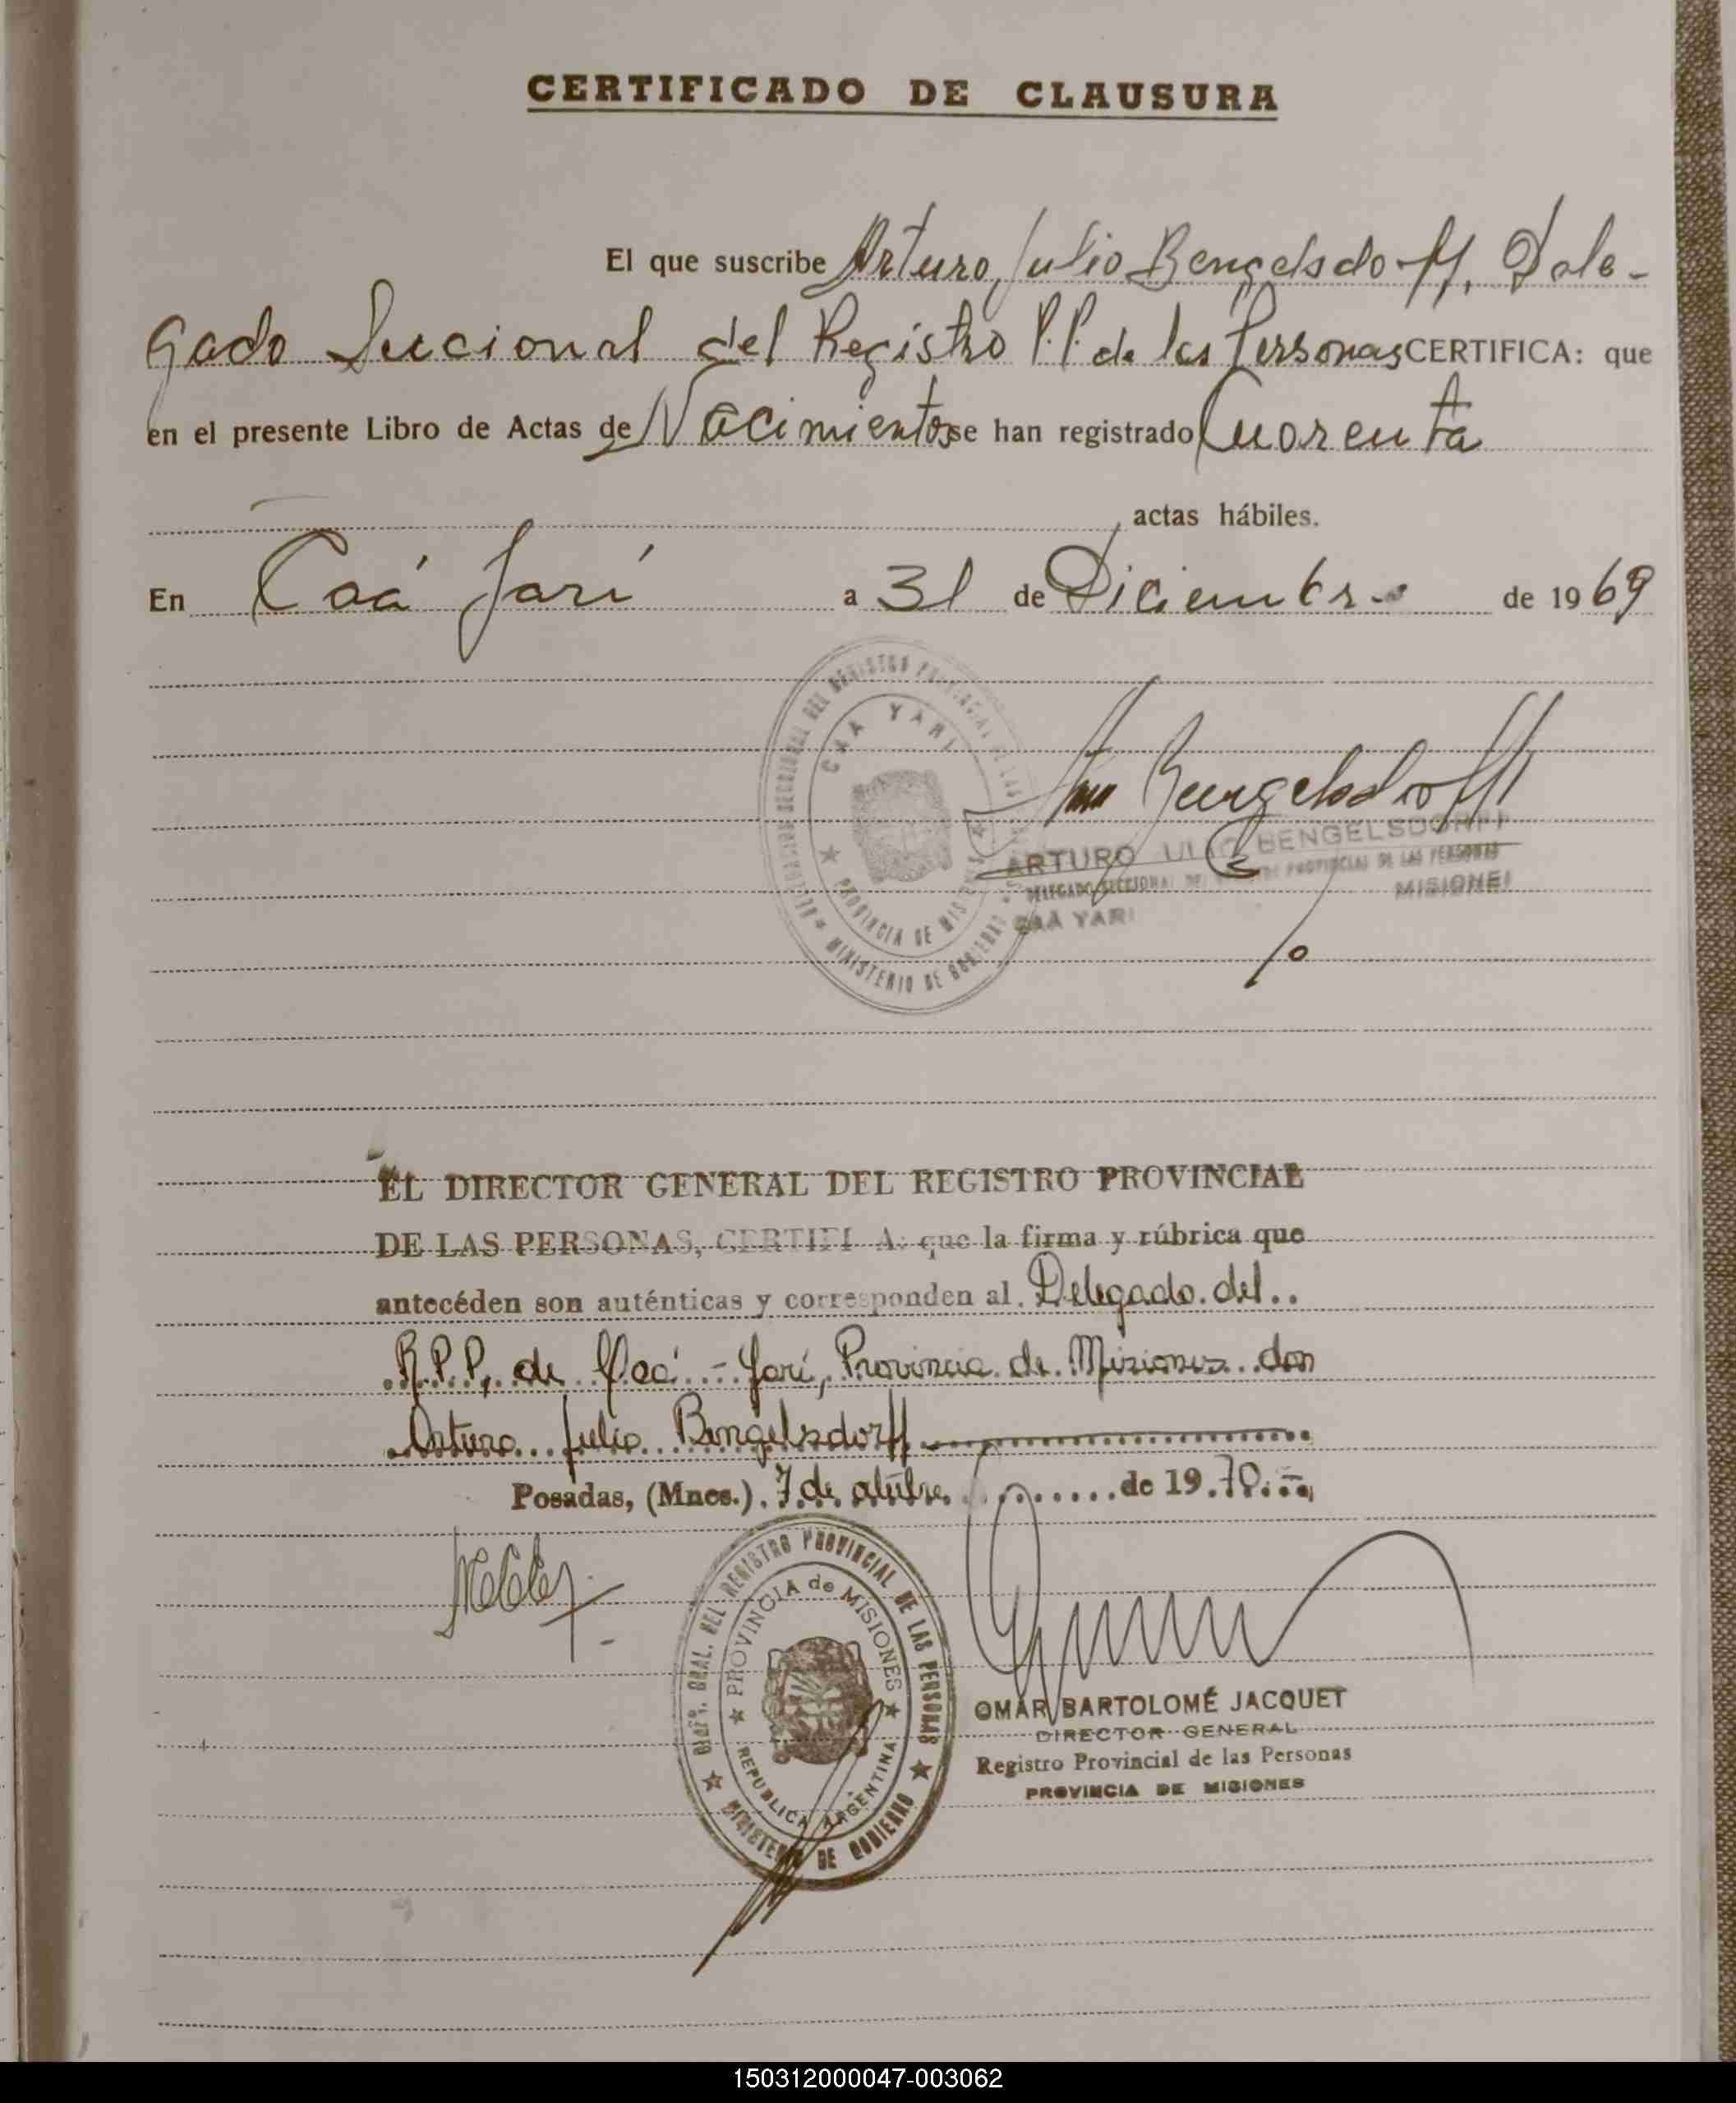 CERTIFICADO DE CLAUSURA
El que suscribe Arturo Julio Bengelsdorff, Dele-
gado Seccional del Registro P.P. de las Personas CERTIFICA: que
en el presente Libro de Actas de Nacimientos se han registrado Cuarenta
actas hábiles.
En Caá Yarí a 31 de Diciembre de 1969
DELEGACION SECCIONAL DEL REGISTRO PROVINCIAL DE LAS
CAA YARI
PROVINCIA DE MISIONES
MINISTERIO DE GOBIERNO
Bengelsdorff
ARTURO JULIO BENGELSDORFF
DELEGADO SECCIONAL DEL PROVINCIAL DE LAS PERSONAS
CAA YARI MISIONES
EL DIRECTOR GENERAL DEL REGISTRO PROVINCIAL
DE LAS PERSONAS, CERTIFI A: que la firma y rúbrica que
antecéden son auténticas y corresponden al Delegado del
R.P.P. de Caá-Yarí, Provincia de Misiones don
Arturo Julio Bengelsdorff
Posadas, (Mnes.) 7 de de 1970
DIREC. GRAL. DEL REGISTRO PROVINCIAL DE LAS PERSONAS
PROVINCIA de MISIONES
REPUBLICA ARGENTINA
MINISTERIO DE GOBIERNO
OMAR BARTOLOMÉ JACQUET
DIRECTOR GENERAL
Registro Provincial de las Personas
PROVINCIA DE MISIONES
150312000047-003062